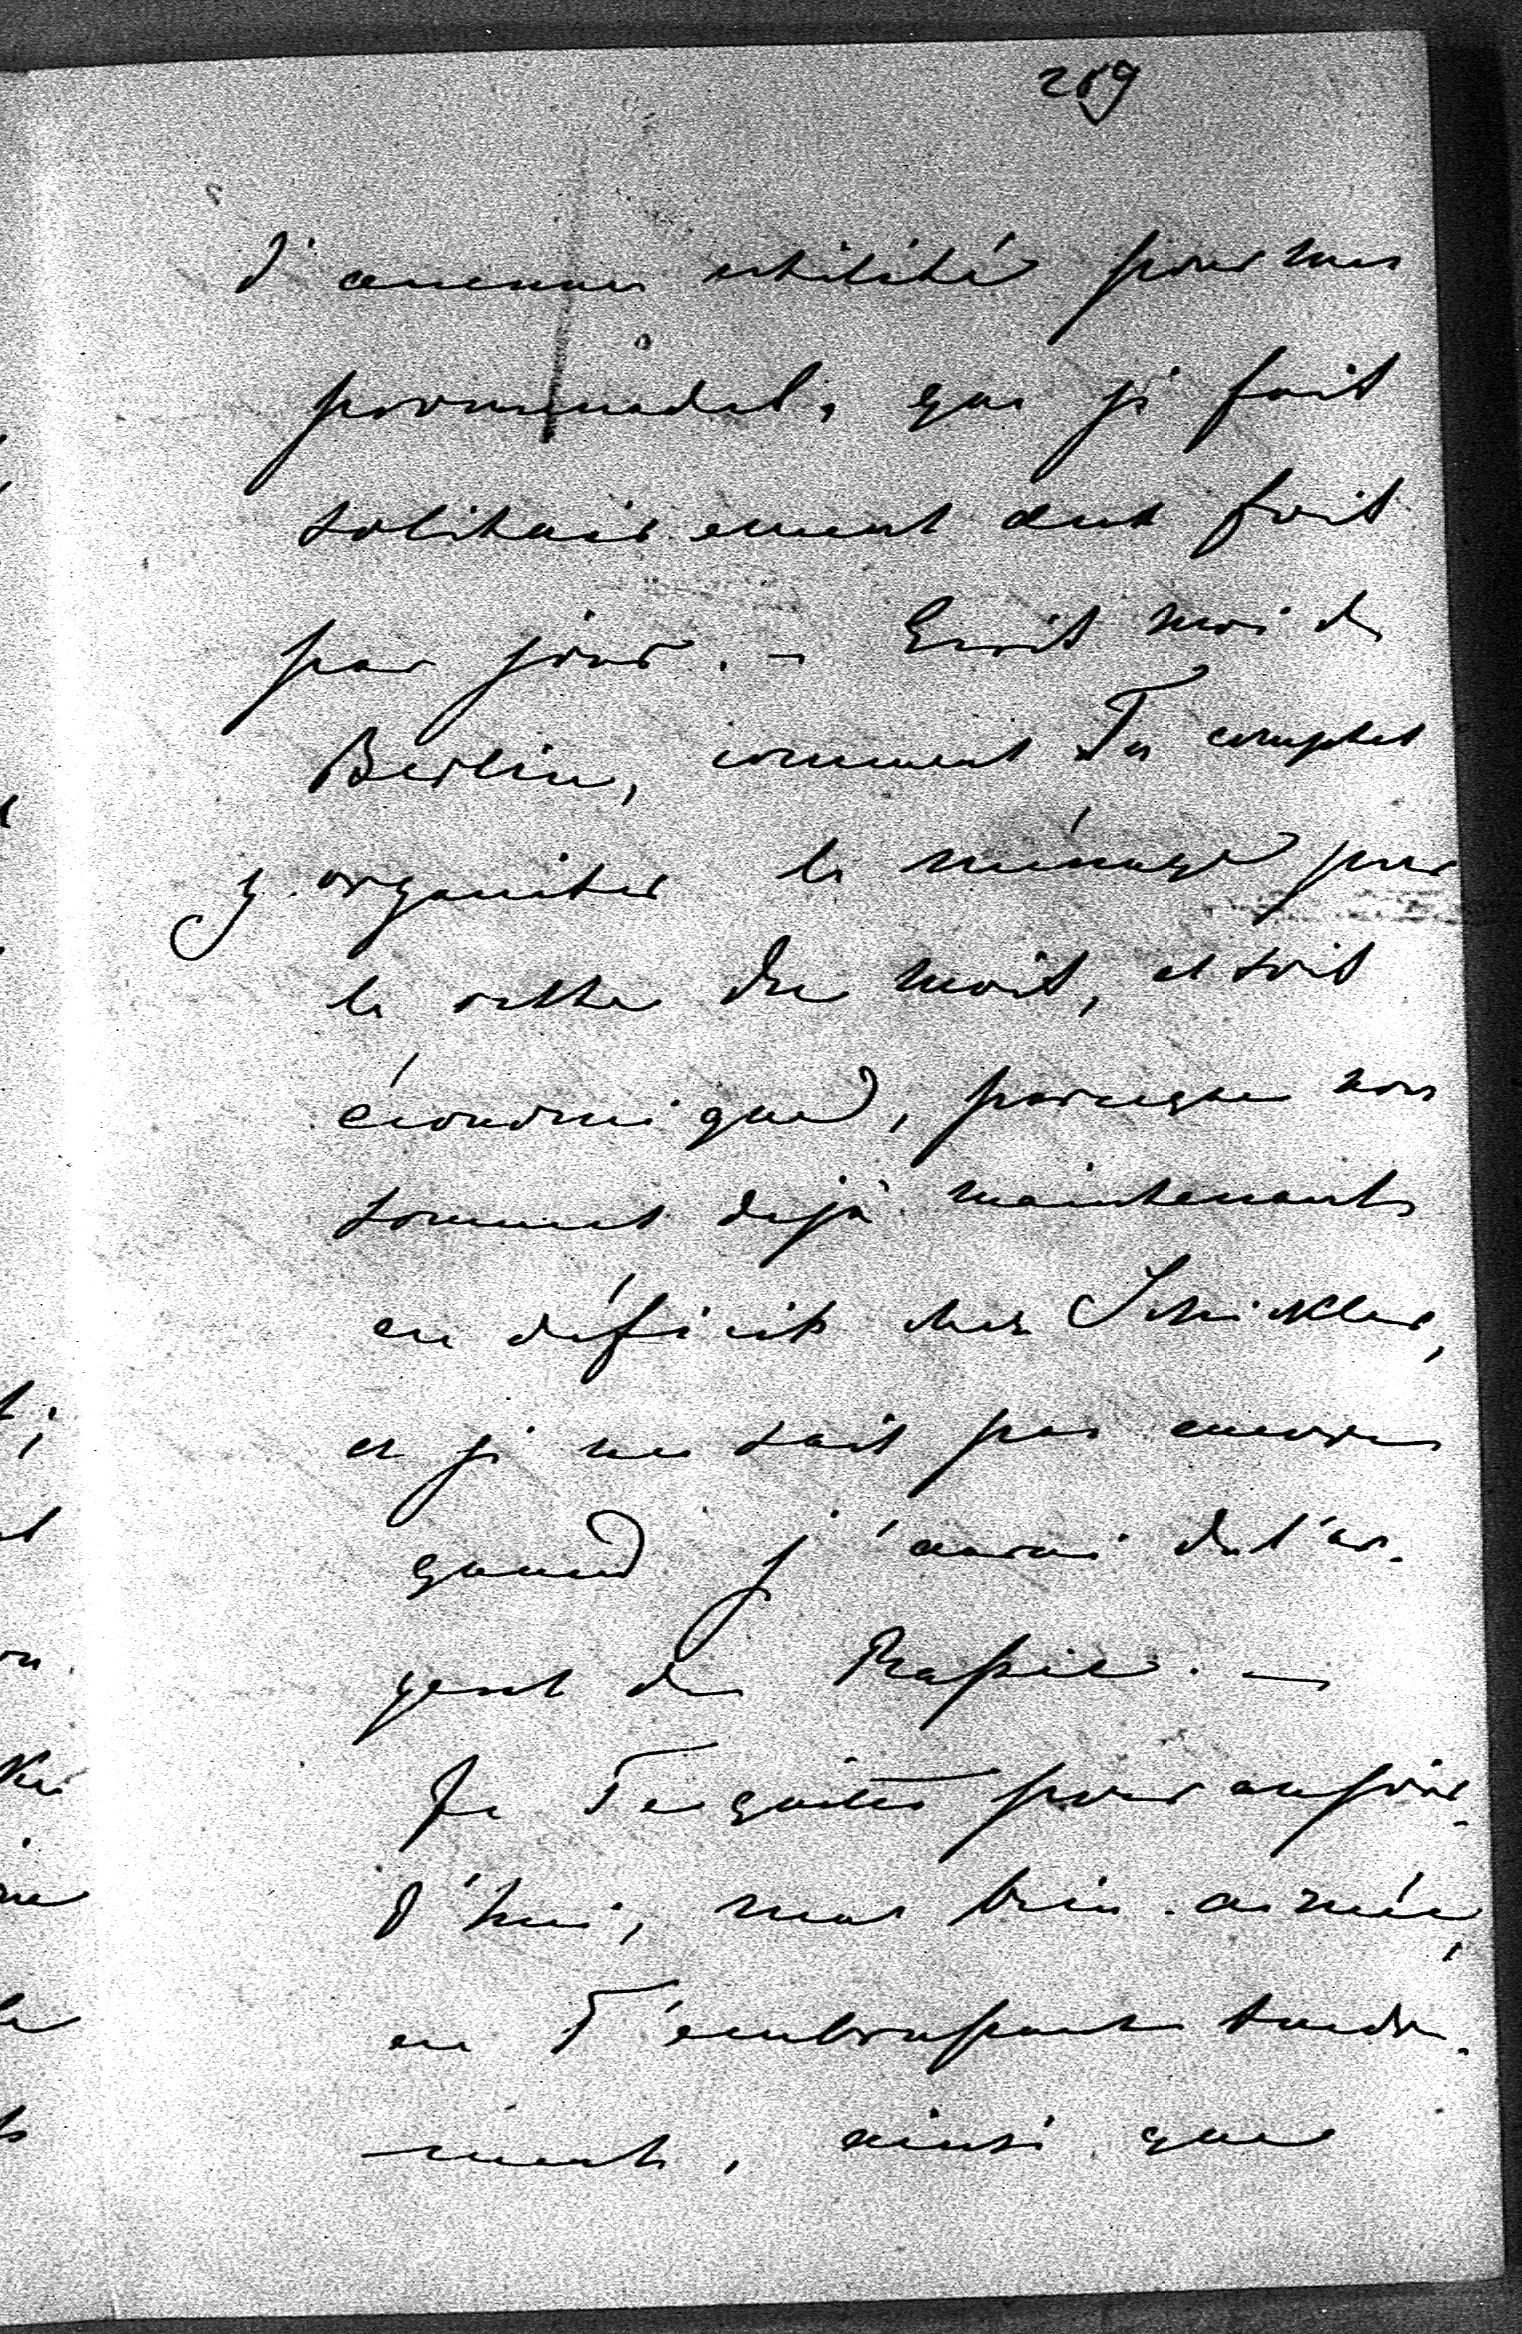 289
d'aucune utilité pour mes
prommenades, que je fais
solitairement deux fois
par jour. – Ecris moi de
Berlin, comment Tu comptes
y organiser le ménage pour
le reste du mois, et sois
économique, parceque nous
sommes dejà maintenant
en déficit chez Schickler,
et je ne sais pas encore
quand j'aurai de l'ar-
gent de Raschi. –
Je Te quitte pour aujour-
d'hui, ma bien-aimée,
en T'embrassant tendre-
ment, ainsi que